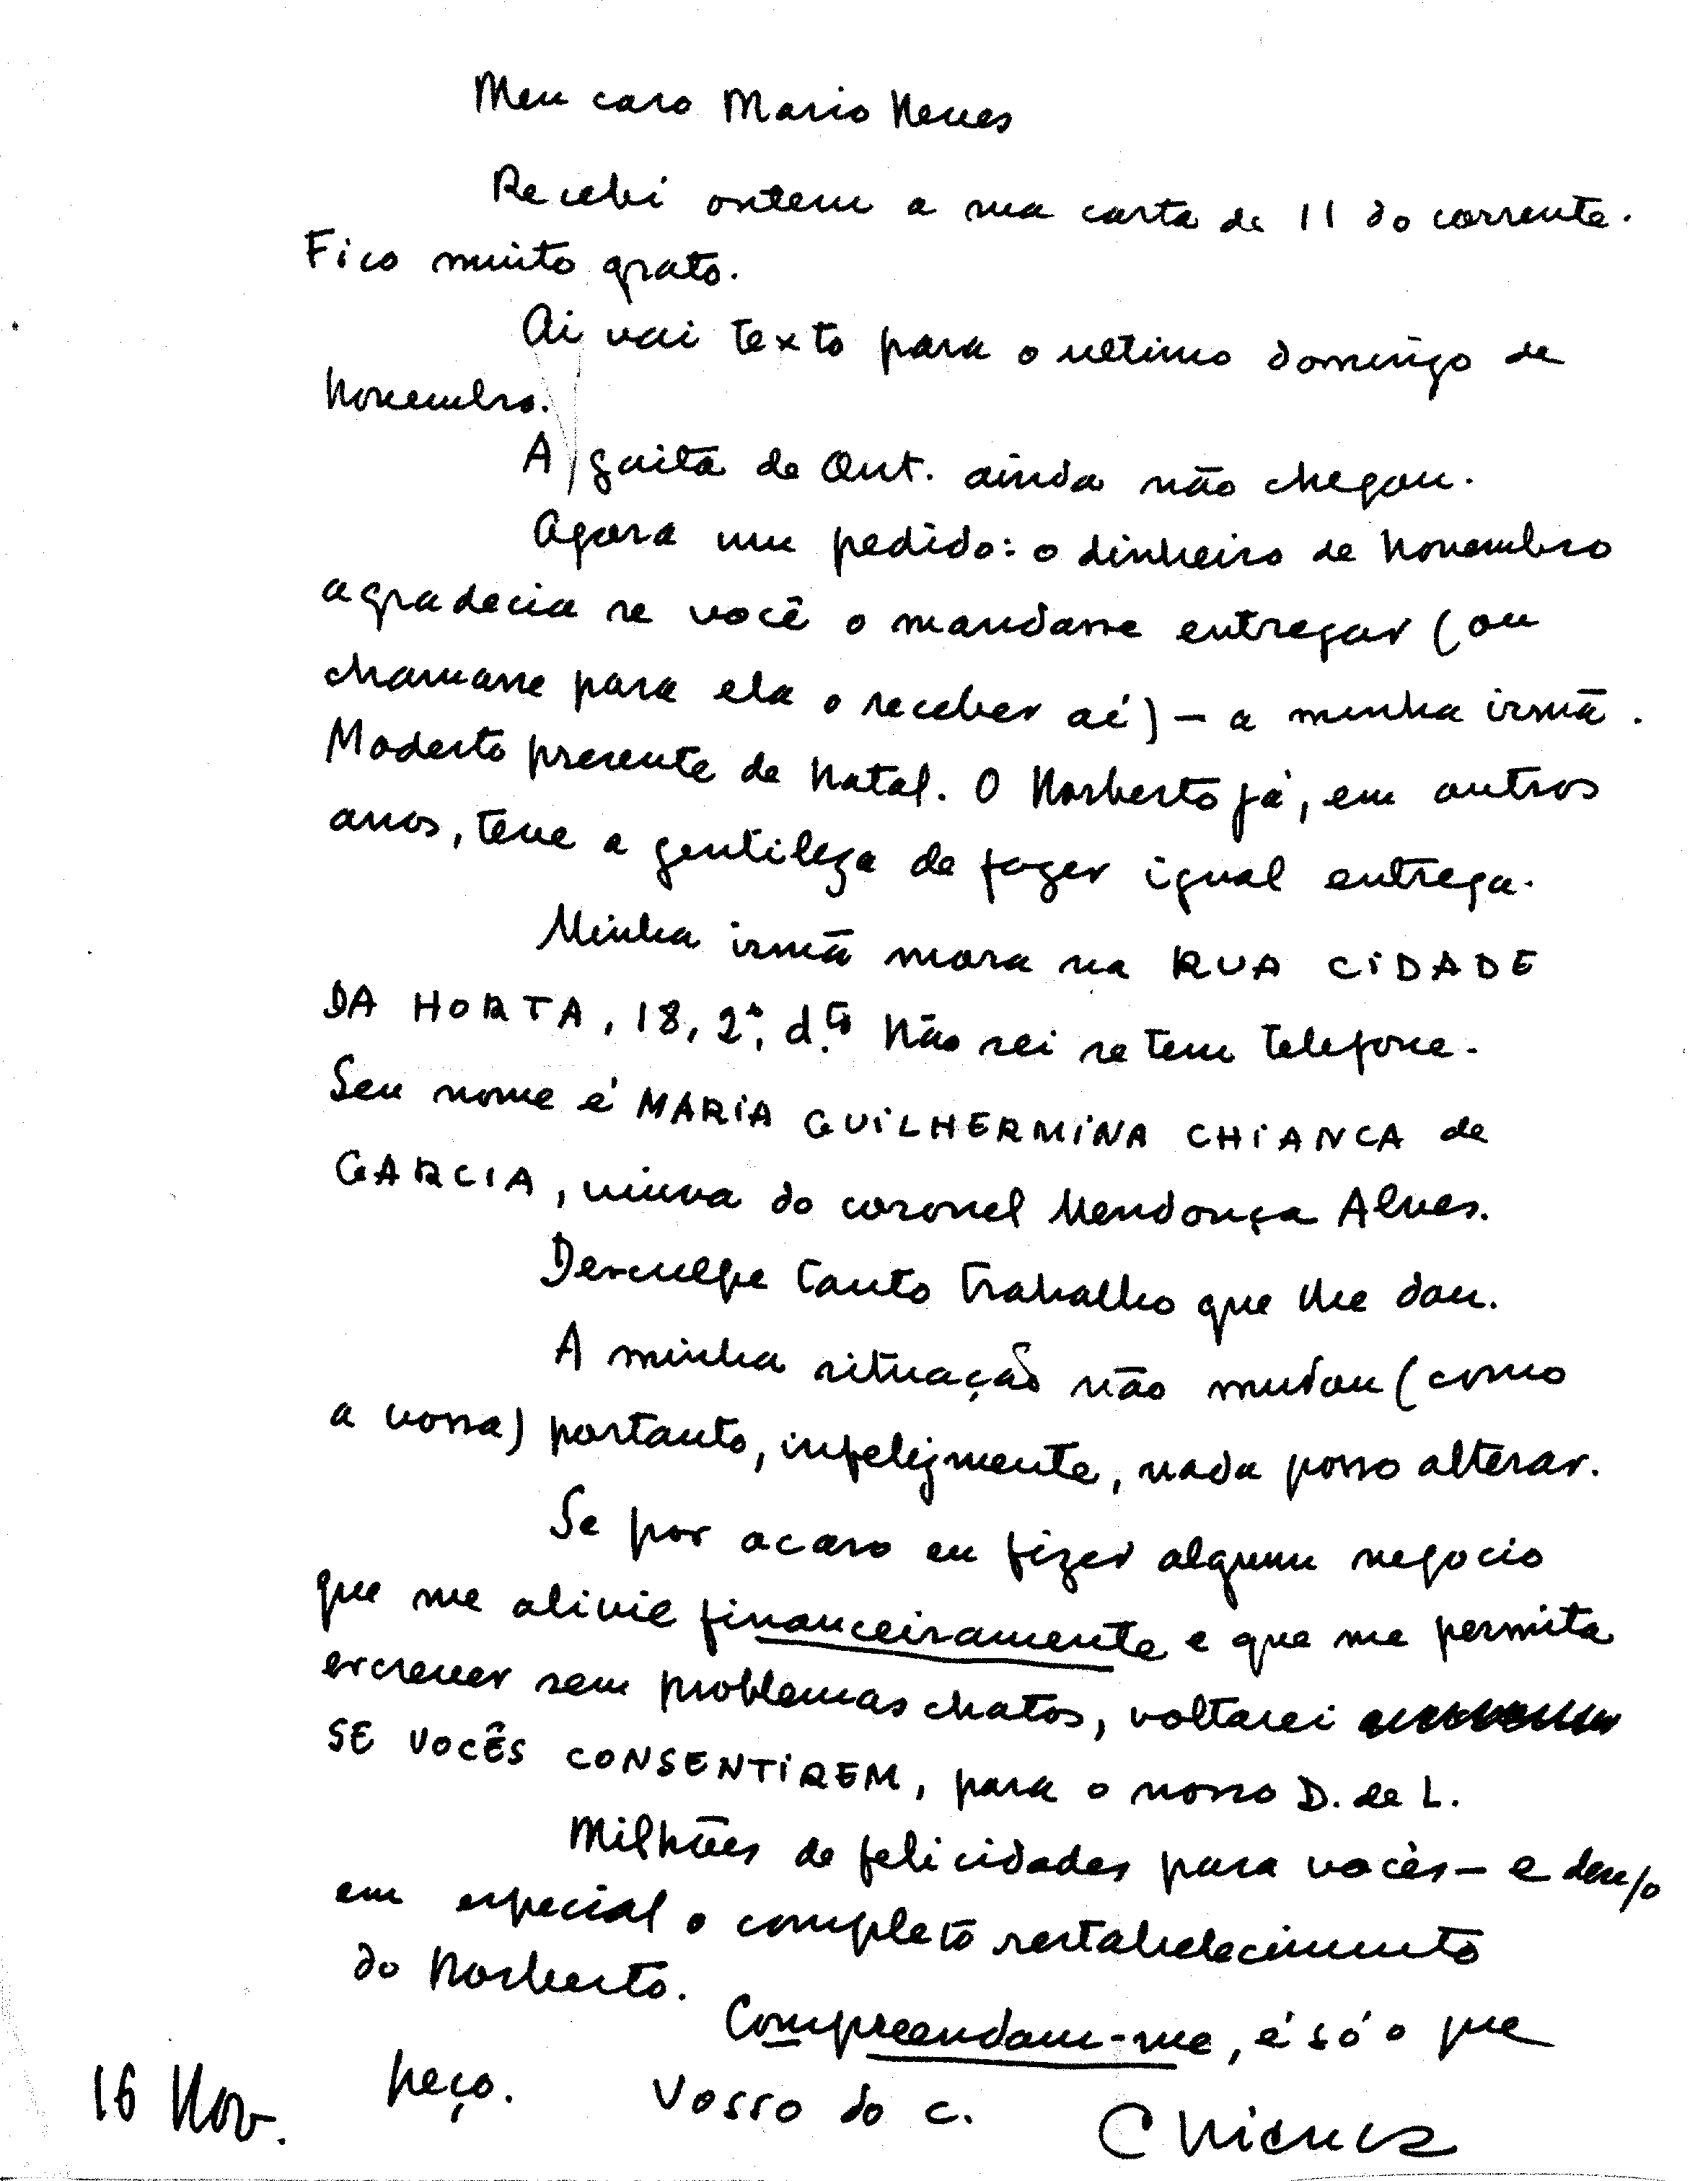 Meu caro Mario Neves
Recebi ontem a sua carta de 11 do corrente.
Fico muito grato.
Ai vai texto para o ultimo domingo de
Novembro.
A gaita de Out. ainda não chegou.
Agora um pedido: o dinheiro de Novembro
agradecia se você o mandasse entregar (ou
chamasse para ela o receber aí) — a minha irmã.
Modesto presente de Natal. O Norberto já, em outros
anos, teve a gentileza de fazer igual entrega.
Minha irmã mora na RUA CIDADE
DA HORTA, 18, 2º, d.to Não sei se tem telefone.
Seu nome é MARIA GUILHERMINA CHIANCA de
GARCIA, viuva do coronel Mendonça Alves.
Desculpe tanto trabalho que lhe dou.
A minha situação não mudou (como
a vossa) portanto, infelizmente, nada posso alterar.
Se por acaso eu fizer algum negocio
que me alivie financeiramente e que me permita
escrever sem problemas chatos, voltarei
SE VOCÊS CONSENTIREM, para o nosso D. de L.
Milhões de felicidades para vocês — e
em especial o completo restabelecimento
do Norberto.
Compreendam-me, é só o que
peço. Vosso do c. Chianca
16 Nov.